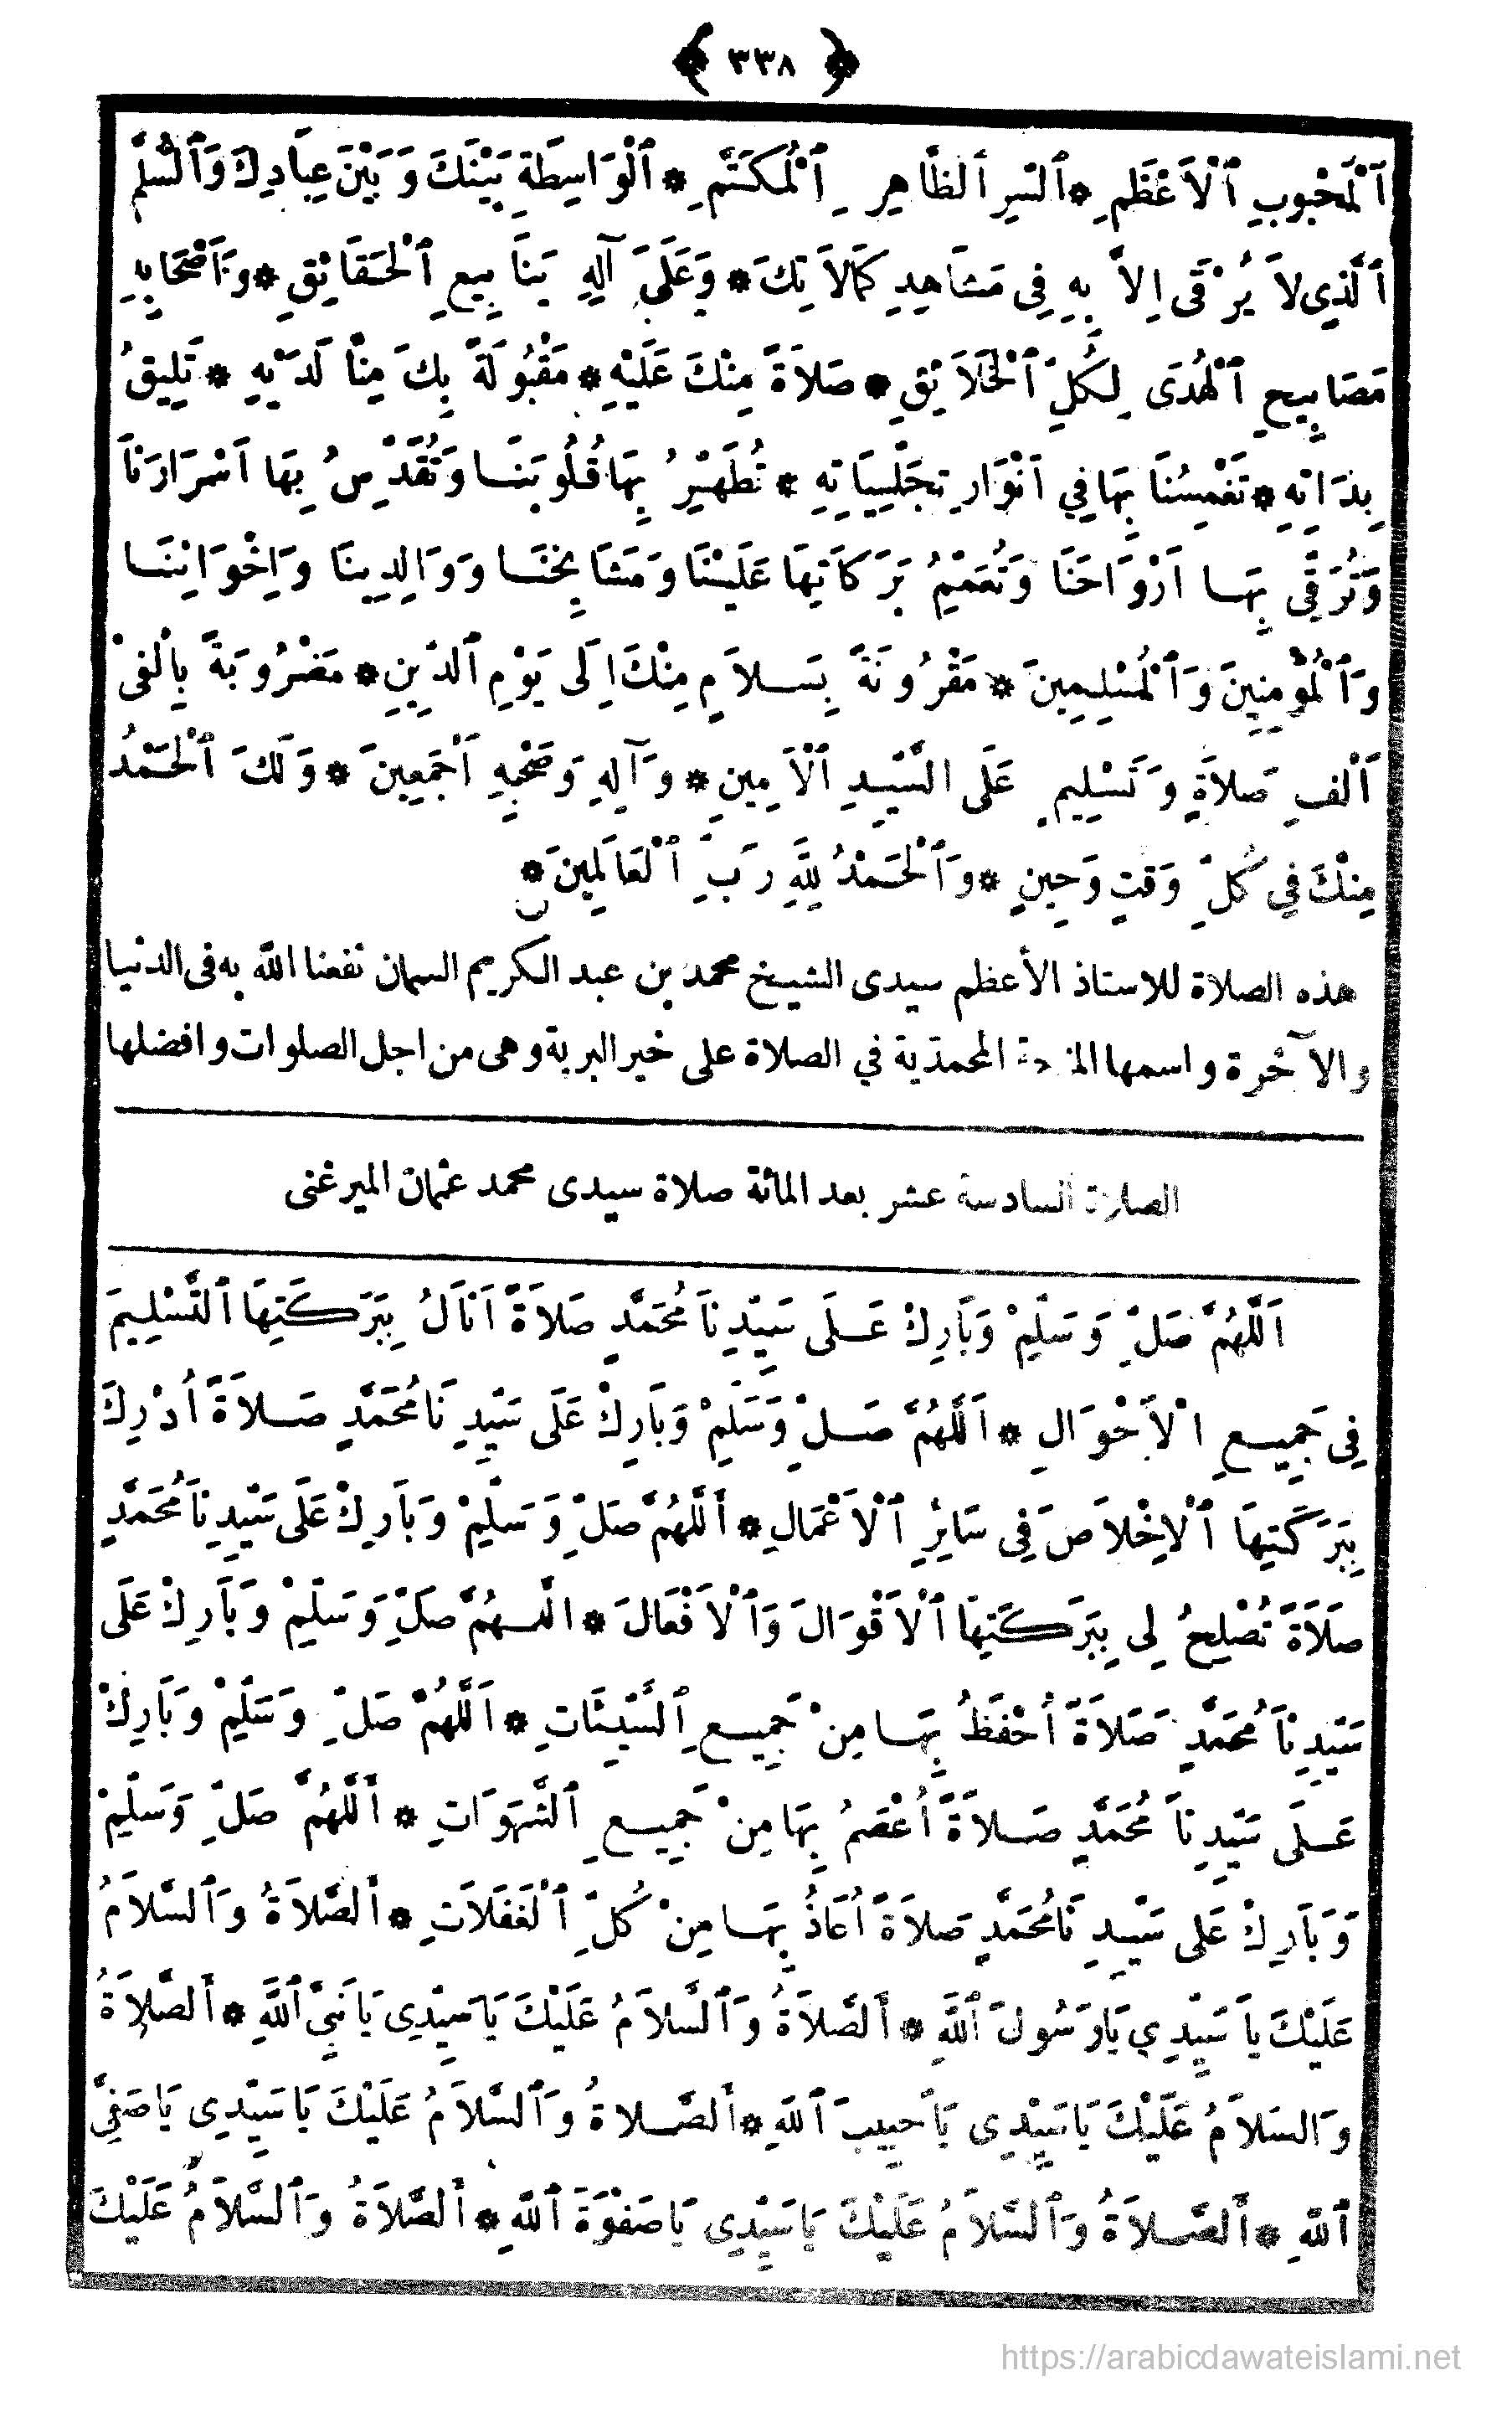 ﴿ ٣٣٨ ﴾
اَلْمَحْبُوبِ ٱلْاَعْظَمِ * ٱلسِّرِ ٱلظَّاهِرِ ٱلْمُكْتَتَمِ * ٱلْوَاسِطَةِ بَيْنَكَ وَبَيْنَ عِبَادِكَ وَٱلسُّلَّمِ
ٱلَّذِي لاَ يُرْقَى اِلاَّ بِهِ فِى مَشَاهِدِ كَمَالاَتِكَ * وَعَلَى آلِهِ يَنَابِيعِ ٱلْحَقَائِقِ * وَاَصْحَابِهِ
مَصَابِيحِ ٱلْهُدَى لِكُلِّ ٱلْخَلَائِقِ * صَلاَةً مِنْكَ عَلَيْهِ * مَقْبُولَةً بِكَ مِنَّا لَدَيْهِ * تَلِيقُ
بِذَاتِهِ * تَغْمِسُنَا بِهَا فِي اَنْوَارِ تَجَلِّيَاتِهِ * تُطَهِّرُ بِهَا قُلُوبَنَا وَتُقَدِّسُ بِهَا اَسْرَارَنَا
وَتُرَقِّي بِهَا اَرْوَاحَنَا وَتُعَمِّمُ بَرَكَاتِهَا عَلَيْنَا وَمَشَايِخِنَا وَوَالِدِينَا وَاِخْوَانِنَا
وَٱلْمُؤْمِنِينَ وَٱلْمُسْلِمِينَ * مَقْرُونَةً بِسَلاَمٍ مِنْكَ اِلَى يَوْمِ ٱلدِّينِ * مَضْرُوبَةً بِاَلْفَىْ
اَلْفِ صَلاَةٍ وَتَسْلِيمٍ عَلَى السَّيِّدِ ٱلْاَمِينِ * وَآلِهِ وَصَحْبِهِ اَجْمَعِينَ * وَلَكَ ٱلْحَمْدُ
مِنْكَ فِي كُلِّ وَقْتٍ وَحِينٍ * وَٱلْحَمْدُ لِلّٰهِ رَبِّ ٱلْعَالَمِينَ *
هذه الصلاة للاستاذ الأعظم سيدى الشيخ محمد بن عبد الكريم السمان نفعنا الله به فى الدنيا
والآخرة واسمها المحمدية في الصلاة على خير البرية وهى من اجل الصلوات وافضلها
الصلاة السادسة عشر بعد المائة صلاة سيدى محمد عثمان الميرغنى
اَللّٰهُمَّ صَلِّ وَسَلِّمْ وَبَارِكْ عَلَى سَيِّدِنَا مُحَمَّدٍ صَلاَةً اَنَالُ بِبَرَكَتِهَا ٱلتَّسْلِيمَ
فِى جَمِيعِ اْلاَحْوَالِ * اَللّٰهُمَّ صَلِّ وَسَلِّمْ وَبَارِكْ عَلَى سَيِّدِنَا مُحَمَّدٍ صَلاَةً اُدْرِكُ
بِبَرَكَتِهَا ٱلْاِخْلاَصَ فِى سَائِرِ ٱلْاَعْمَالِ * أَللّٰهُمَّ صَلِّ وَسَلِّمْ وَبَارِكْ عَلَى سَيِّدِنَا مُحَمَّدٍ
صَلَاَةً تُصْلِحُ لِى بِبَرَكَتِهَا ٱلْاَقْوَالَ وَٱلْاَفْعَالَ * اللهُمَّ صَلِّ وَسَلِّمْ وَبَارِكْ عَلَى
سَيِّدِنَا مُحَمَّدٍ صَلاَةً أُحْفَظُ بِهَا مِنْ جَمِيعِ ٱلسَّيِّئَاتِ * اَللّٰهُمَّ صَلِّ وَسَلِّمْ وَبَارِكْ
عَلَى سَيِّدِنَا مُحَمَّدٍ صَلاَةً أُعْصَمُ بِهَا مِنْ جَمِيعِ ٱلشَّهَوَاتِ * أَللّٰهُمَّ صَلِّ وَسَلِّمْ
وَبَارِكْ عَلَى سَيِّدِنَا مُحَمَّدٍ صَلاَةً اُعَاذُ بِهَا مِنْ كُلِّ ٱلْغَفَلَاتِ * أَلصَّلاَةُ وَٱلسَّلاَمُ
عَلَيْكَ يَا سَيِّدِي يَارَسُولَ ٱللّٰهِ * أَلصَّلاَةُ وَٱلسَّلاَمُ عَلَيْكَ يَا سَيِّدِى يَا نَبِيَّ ٱللّٰهِ * أَلصَّلاَةُ
وَالسَلاَمُ عَلَيْكَ يَا سَيِّدِى يَا حَبِيبَ ٱللّٰهِ * أَلصَّلاةُ وَٱلسَّلاَمُ عَلَيْكَ يَا سَيِّدِى يَا صَفِيَّ
ٱللّٰهِ * أَلصَّلاَةُ وَٱلسَّلاَمُ عَلَيْكَ يَا سَيِّدِى يَا صَفْوَةَ ٱللّٰهِ * أَلصَّلاَةُ وَٱلسَّلاَمُ عَلَيْكَ
https://arabicdawateislami.net